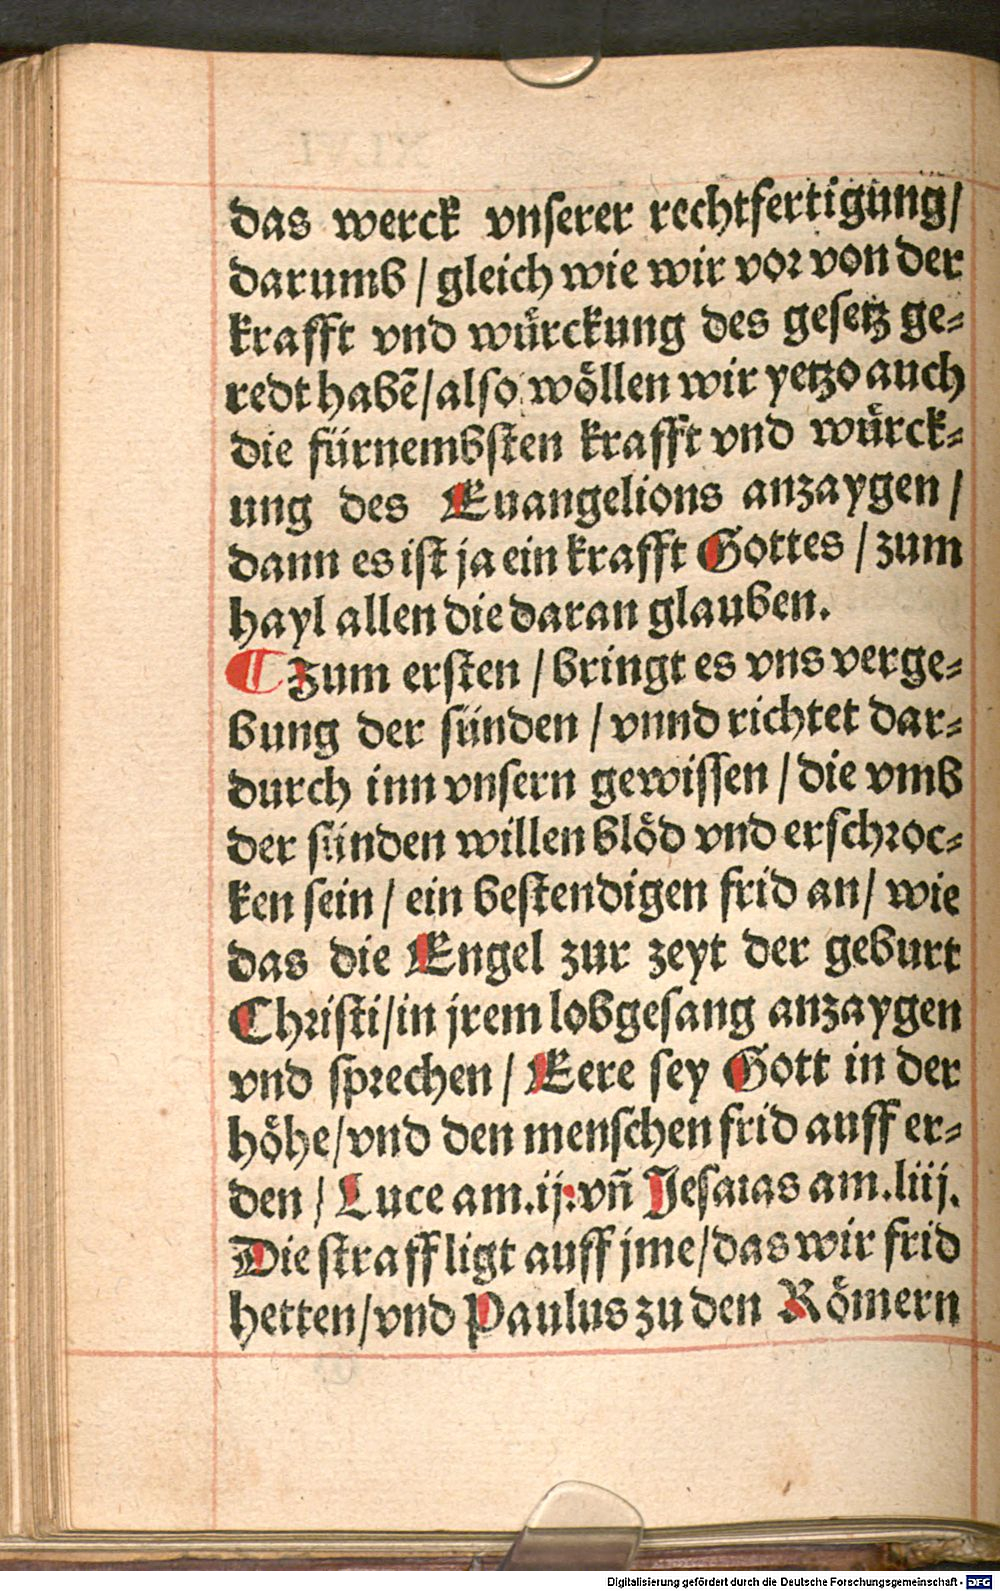 das werck vnserer rechtfertigung/
darumb / gleich wie wir vor von der
krafft vnd würckung des gesetz ge⸗
redt habẽ/also wöllen wir yetzo auch
die fürnembsten krafft vnd würck⸗
ung des Euangelions anzaygen /
dann es ist ja ein krafft Gottes / zum
hayl allen die daran glauben.
¶ Zum ersten / bringt es vns verge⸗
bung der sünden / vnnd richtet dar⸗
durch inn vnsern gewissen / die vmb
der sünden willen blöd vnd erschroc⸗
ken sein / ein bestendigen frid an/ wie
das die Engel zur zeyt der geburt
Christi/in jrem lobgesang anzaygen
vnd sprechen / Eere sey Gott in der
höhe/vnd den menschen frid auff er⸗
den / Luce am.ij.vñ Jesaias am.liij.
Die straff ligt auff jme/das wir frid
hetten/vnd Paulus zu den Römern
Digitalisierung gefördert durch die Deutsche Forschungsgemeinschaft - DFG